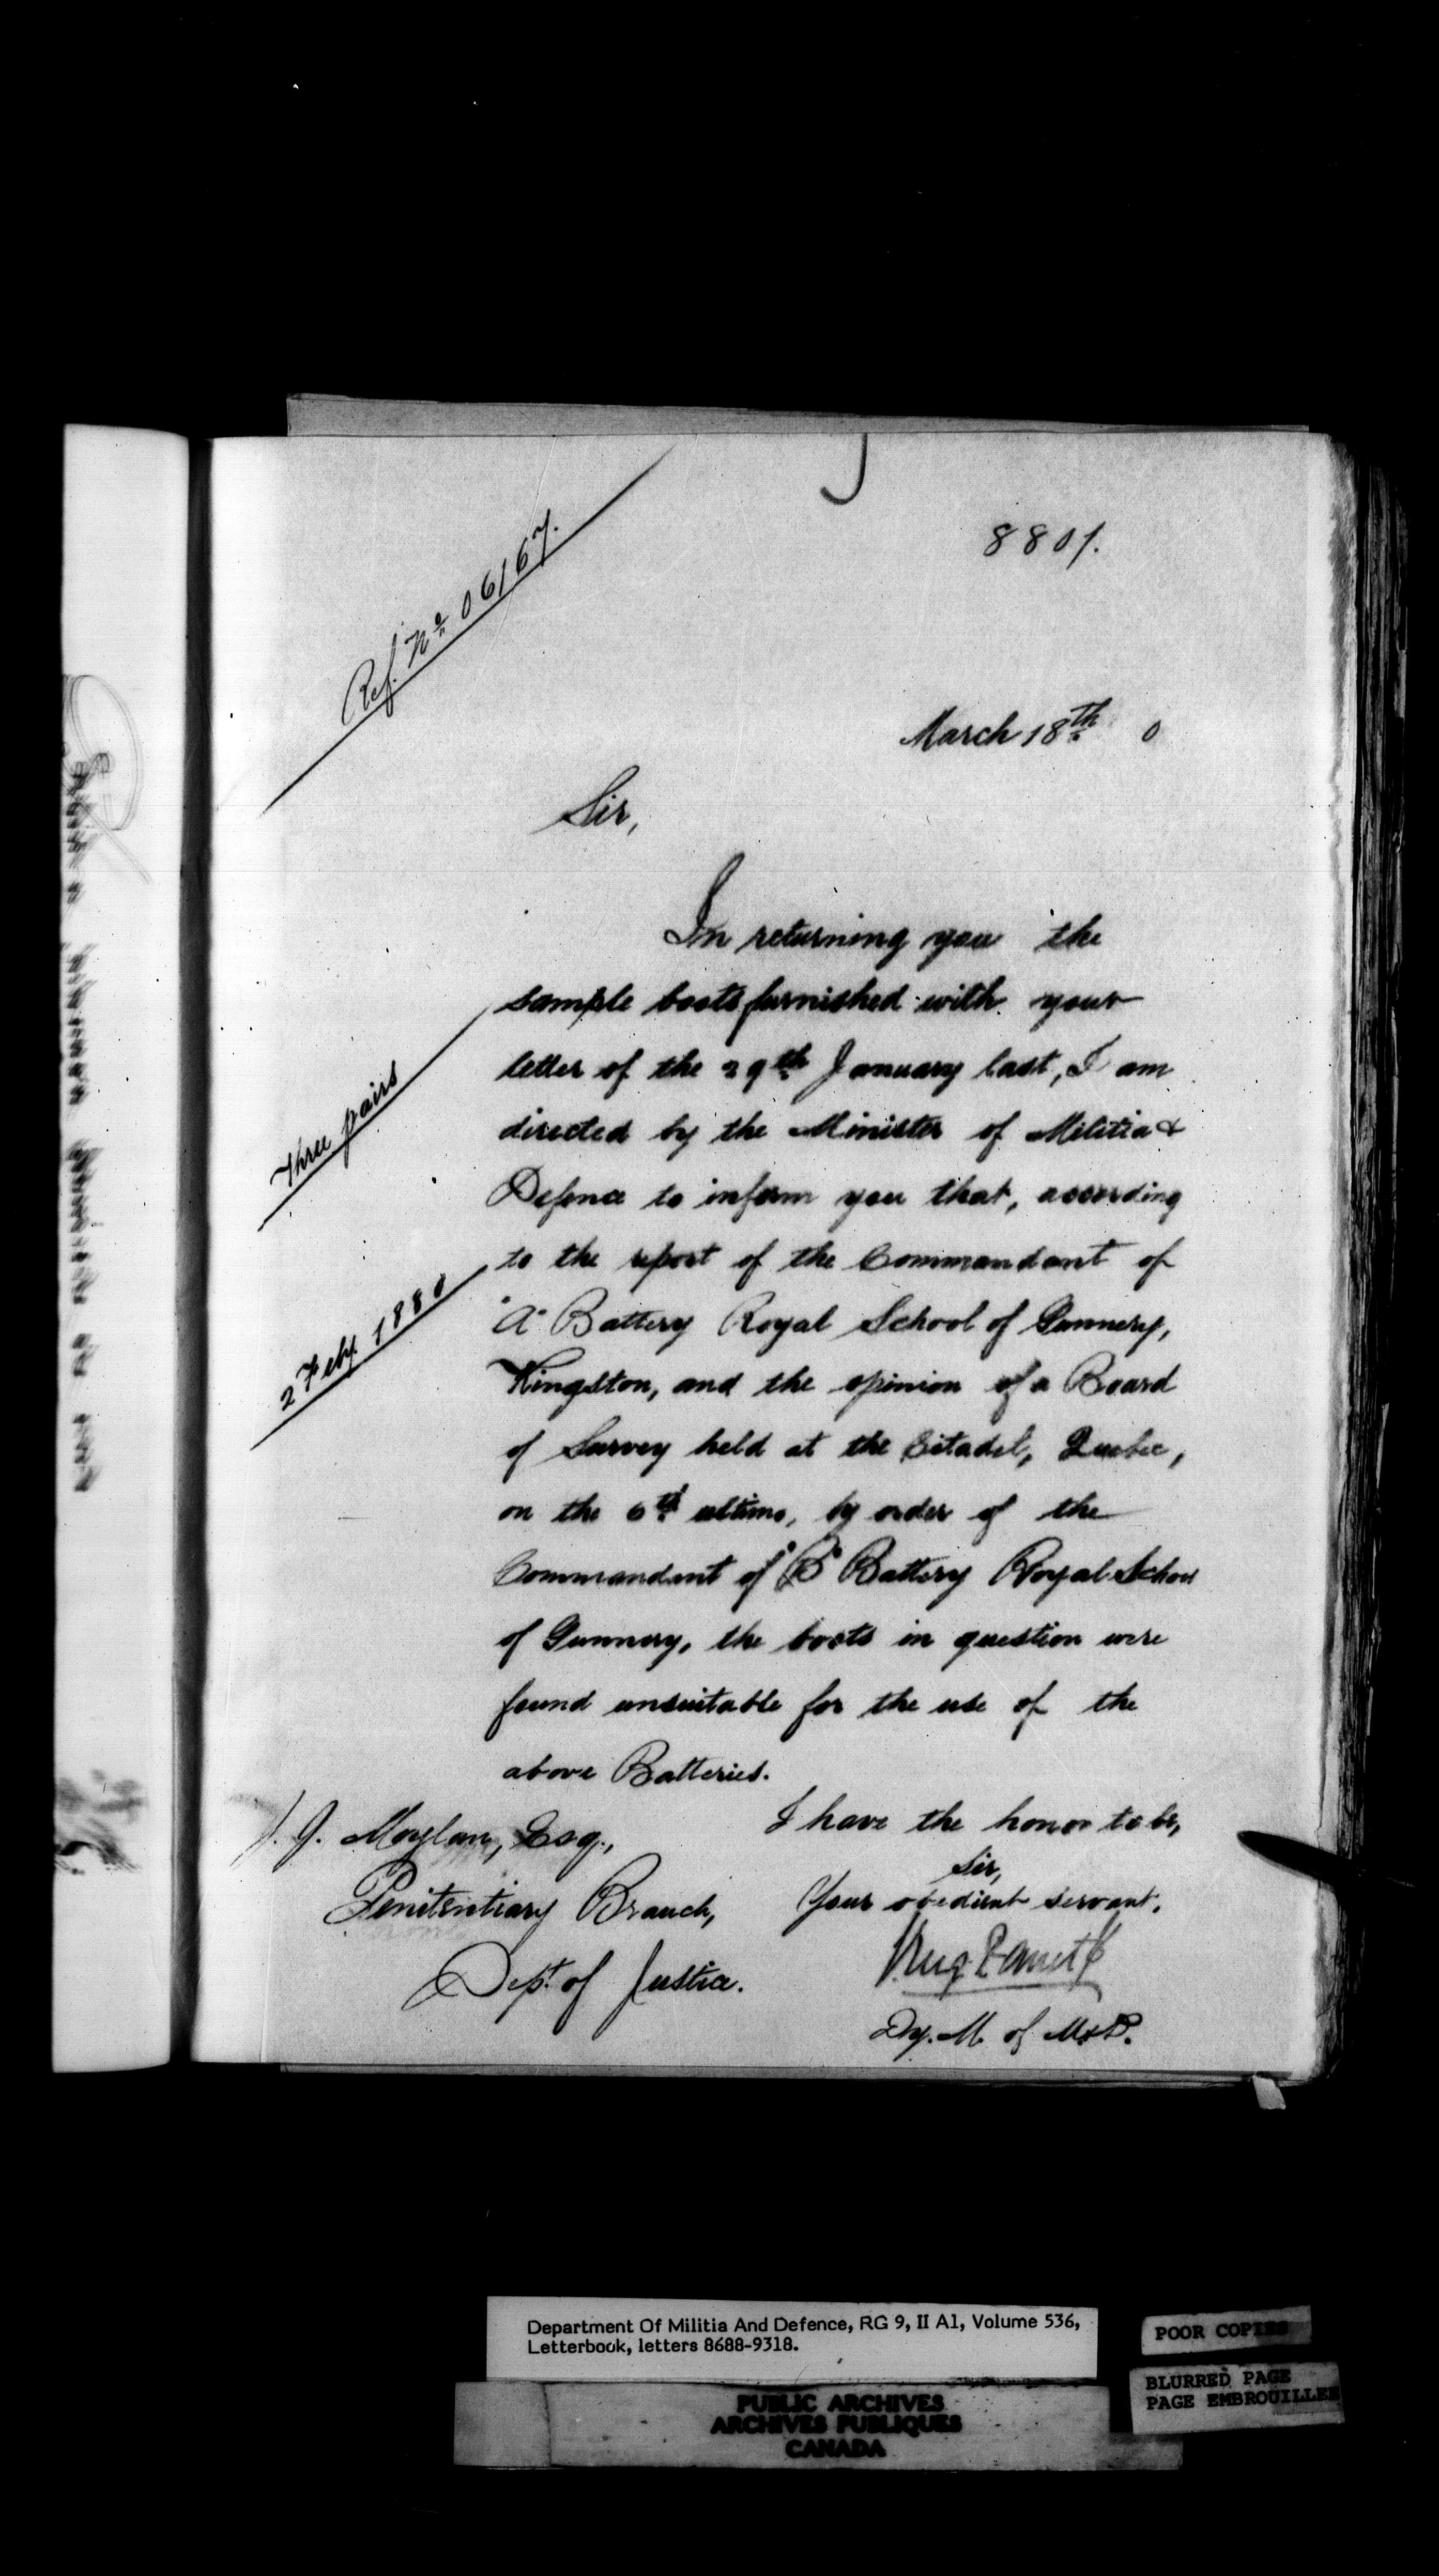 8801.
Ref. No. 06167.
March 18th 0
Sir,
In returning you the
sample boots furnished with your
Three pairs
letter of the 29th January last, I am
directed by the Minister of Militia &
Defence to inform you that, according
to the report of the Commandant of
2 Feby. 1880
"A" Battery Royal School of Gunnery,
Kingston, and the opinion of a Board
of Survey held at the Citadel, Quebec,
on the 6th ultimo, by order of the
Commandant of "B" Battery Royal School
of Gunnery, the boots in question were
found unsuitable for the use of the
above Batteries.
I have the honor to be,
Sir,
Your obedient servant,
Dy. M. of M. & D.
J. G. Moylan, Esq.,
Penitentiary Branch,
Dept. of Justice.
Department Of Militia And Defence, RG 9, II A1, Volume 536,
Letterbook, letters 8688-9318.
POOR COPIES
BLURRED PAGE
PAGE EMBROUILLEE
PUBLIC ARCHIVES
ARCHIVES PUBLIQUES
CANADA